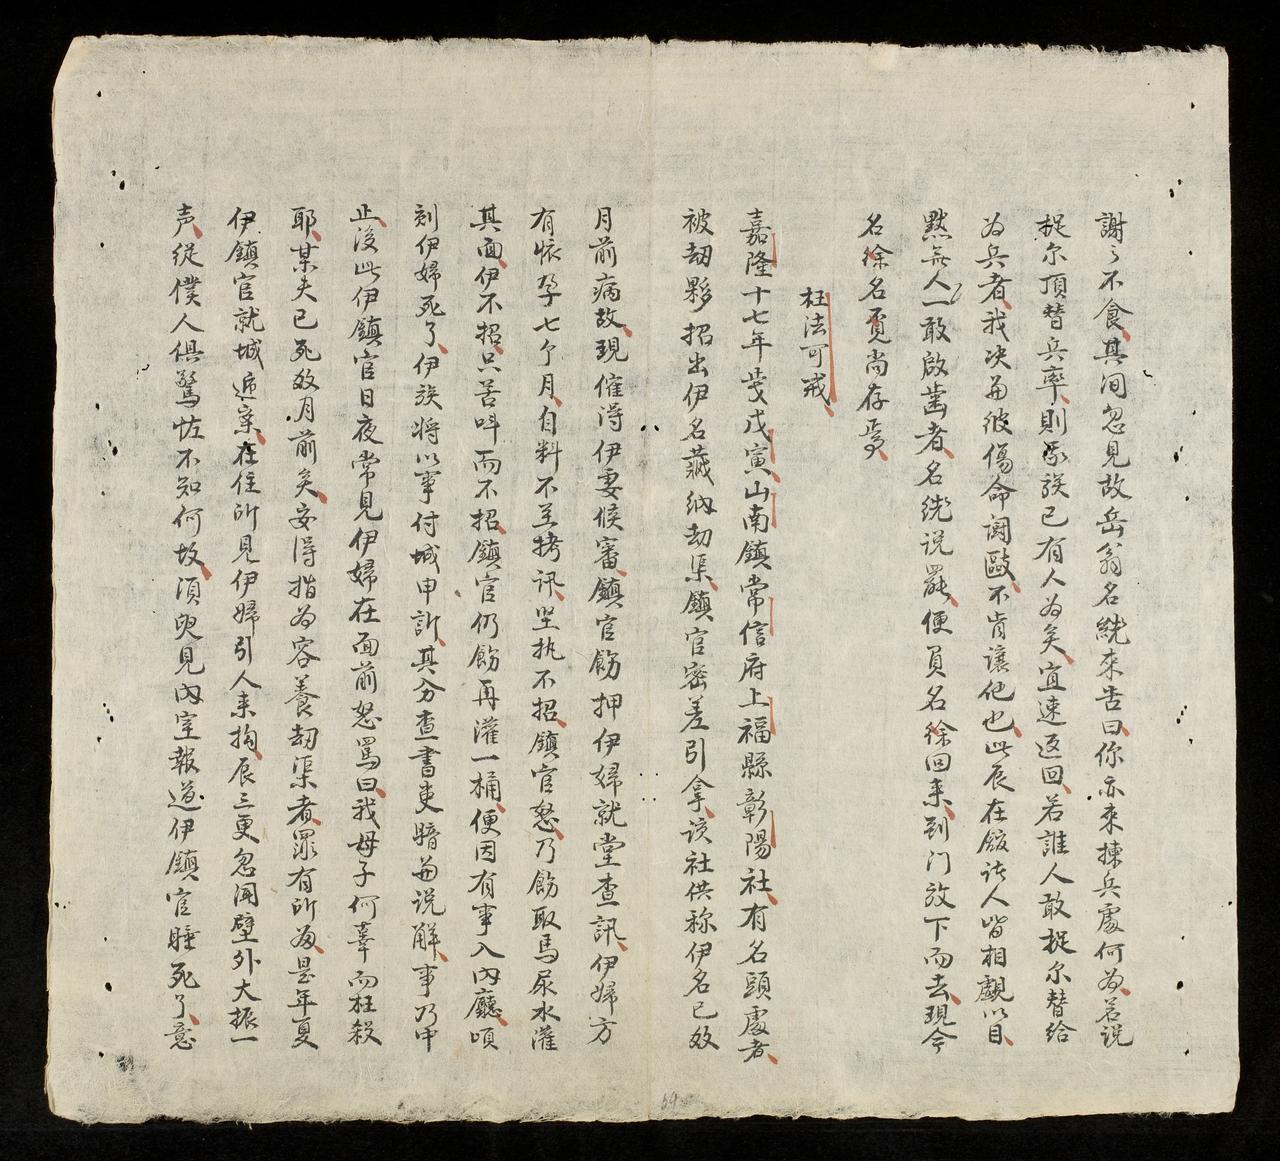 謝〻不食其间忽見故岳翁名統來告曰你亦來揀兵處何為若説
捉尔頂替兵率則家族已有人為矣宜速返回若誰人敢捉尔替給
為兵者我决與彼傷命閗毆不肯讓他也此辰在館诸人皆相覷以目
黙無人一敢啟齒者名統说罷便負名徐回来到门放下而去現今
名徐名頁尚存焉
枉法可戒
嘉隆十七年歲戊寅山南鎮常信府上福縣彰陽社有名頭處者
被劫夥招出伊名藏納劫渠鎮官密差引拿该社供称伊名已数
月前病故現催得伊妻候審鎮官飭押伊婦就堂查訊伊婦方
有懷孕七个月自料不至拷讯坚执不招鎮官怒乃飭取馬尿水灌
其面伊不招只苦呌而不招鎮官仍飭再灌一桶便因有事入内廳頃
刻伊婦死了伊族将以事付城申訴其分查書吏暗與说解事乃中
止後此伊鎮官日夜常見伊婦在面前怒罵曰我母子何辜而枉殺
耶某夫已死数月前矣安得指為容養劫渠者罪有所為是年夏
伊鎮官就城逓案在住所見伊婦引人来拘辰三更忽闻壁外大振一
声從僕人俱驚怯不知何故須臾見内室報道伊鎮官睡死了意
69